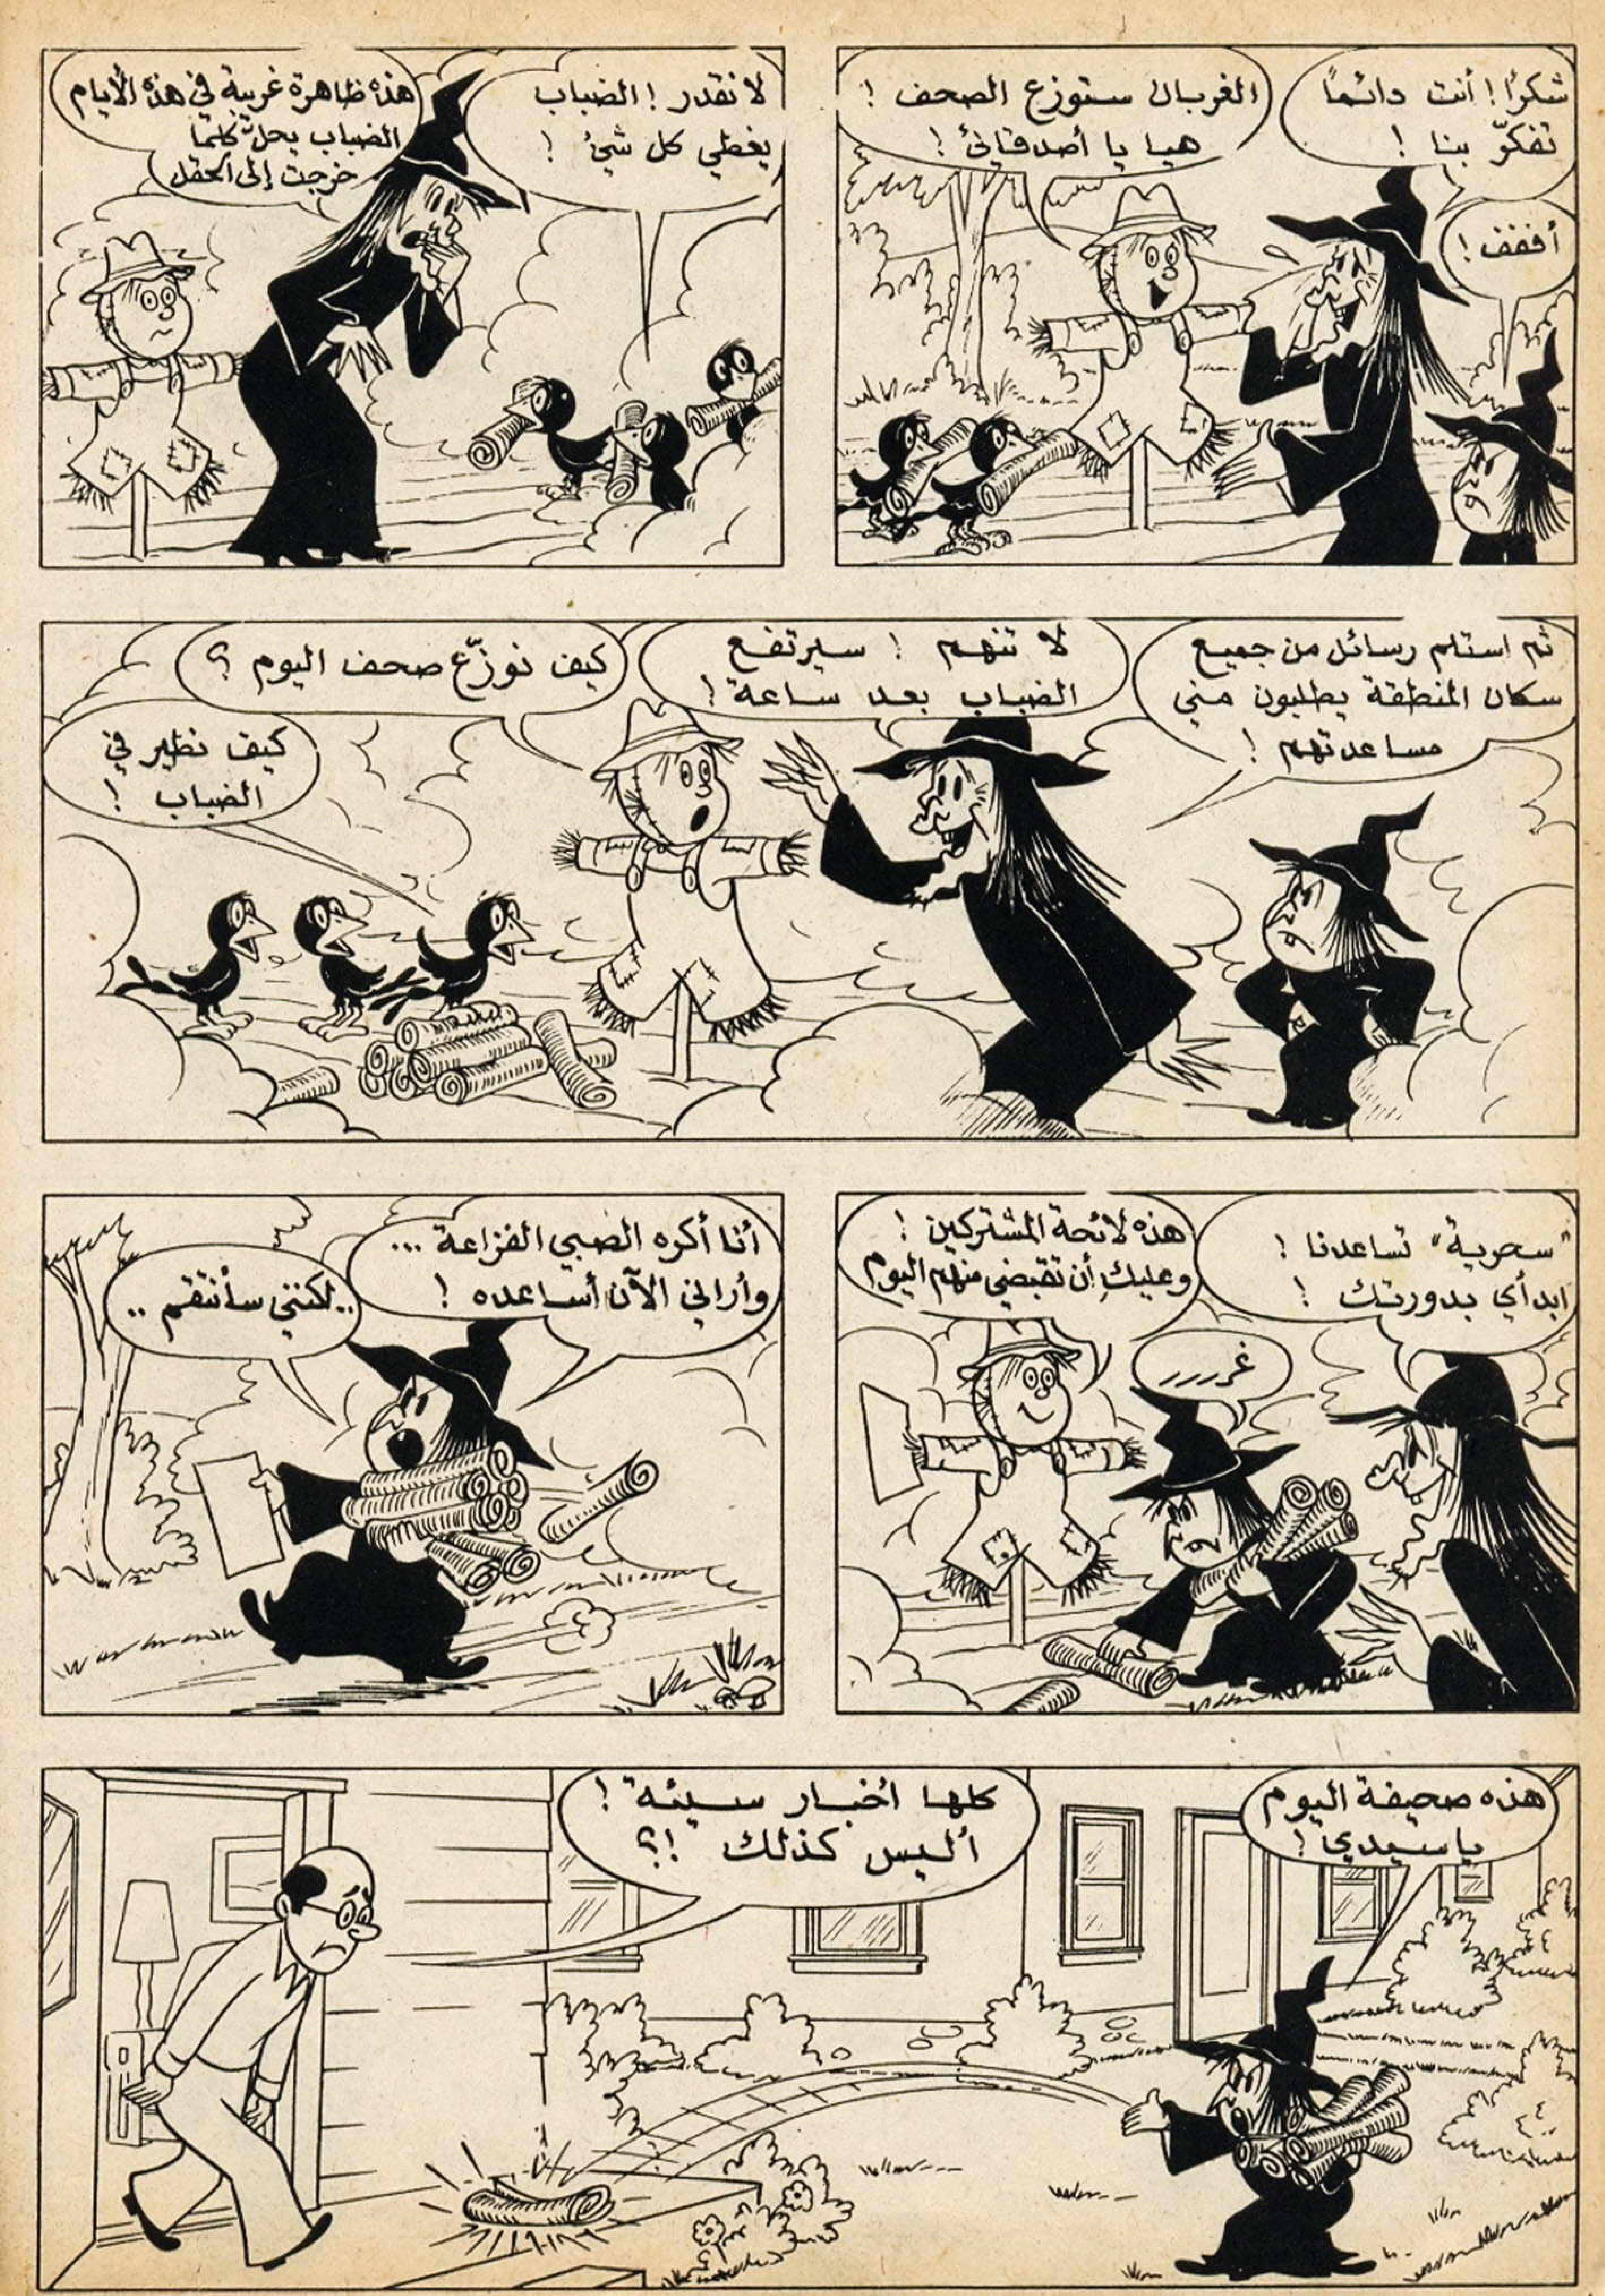 شكراً! أنت دائماً
تفكّر بنا !
أففف !
الغربان ستوزع الصحف !
هيا يا أصدقائي !
لا نقدر ! الضباب
يغطي كل شيء !
هذه ظاهرة غريبة في هذه الأيام
الضباب يحلّ كلما
خرجت إلى الحقل
ثم استلم رسائل من جميع
سكان المنطقة يطلبون مني
مساعدتهم !
لا تهم ! سيرتفع
الضباب بعد ساعة !
كيف نوزّع صحف اليوم ؟
كيف نطير في
الضباب !
"سحرية" تساعدنا !
ابدأي بدورتك !
هذه لائحة المشتركين !
وعليكِ أن تقبضي منهم اليوم
غررر
أنا أكره الصبي الفزاعة ...
وأراني الآن أساعده !
.. لكنني سأنتقم ..
هذه صحيفة اليوم
يا سيدي !
كلها أخبار سيئة !
أليس كذلك !؟